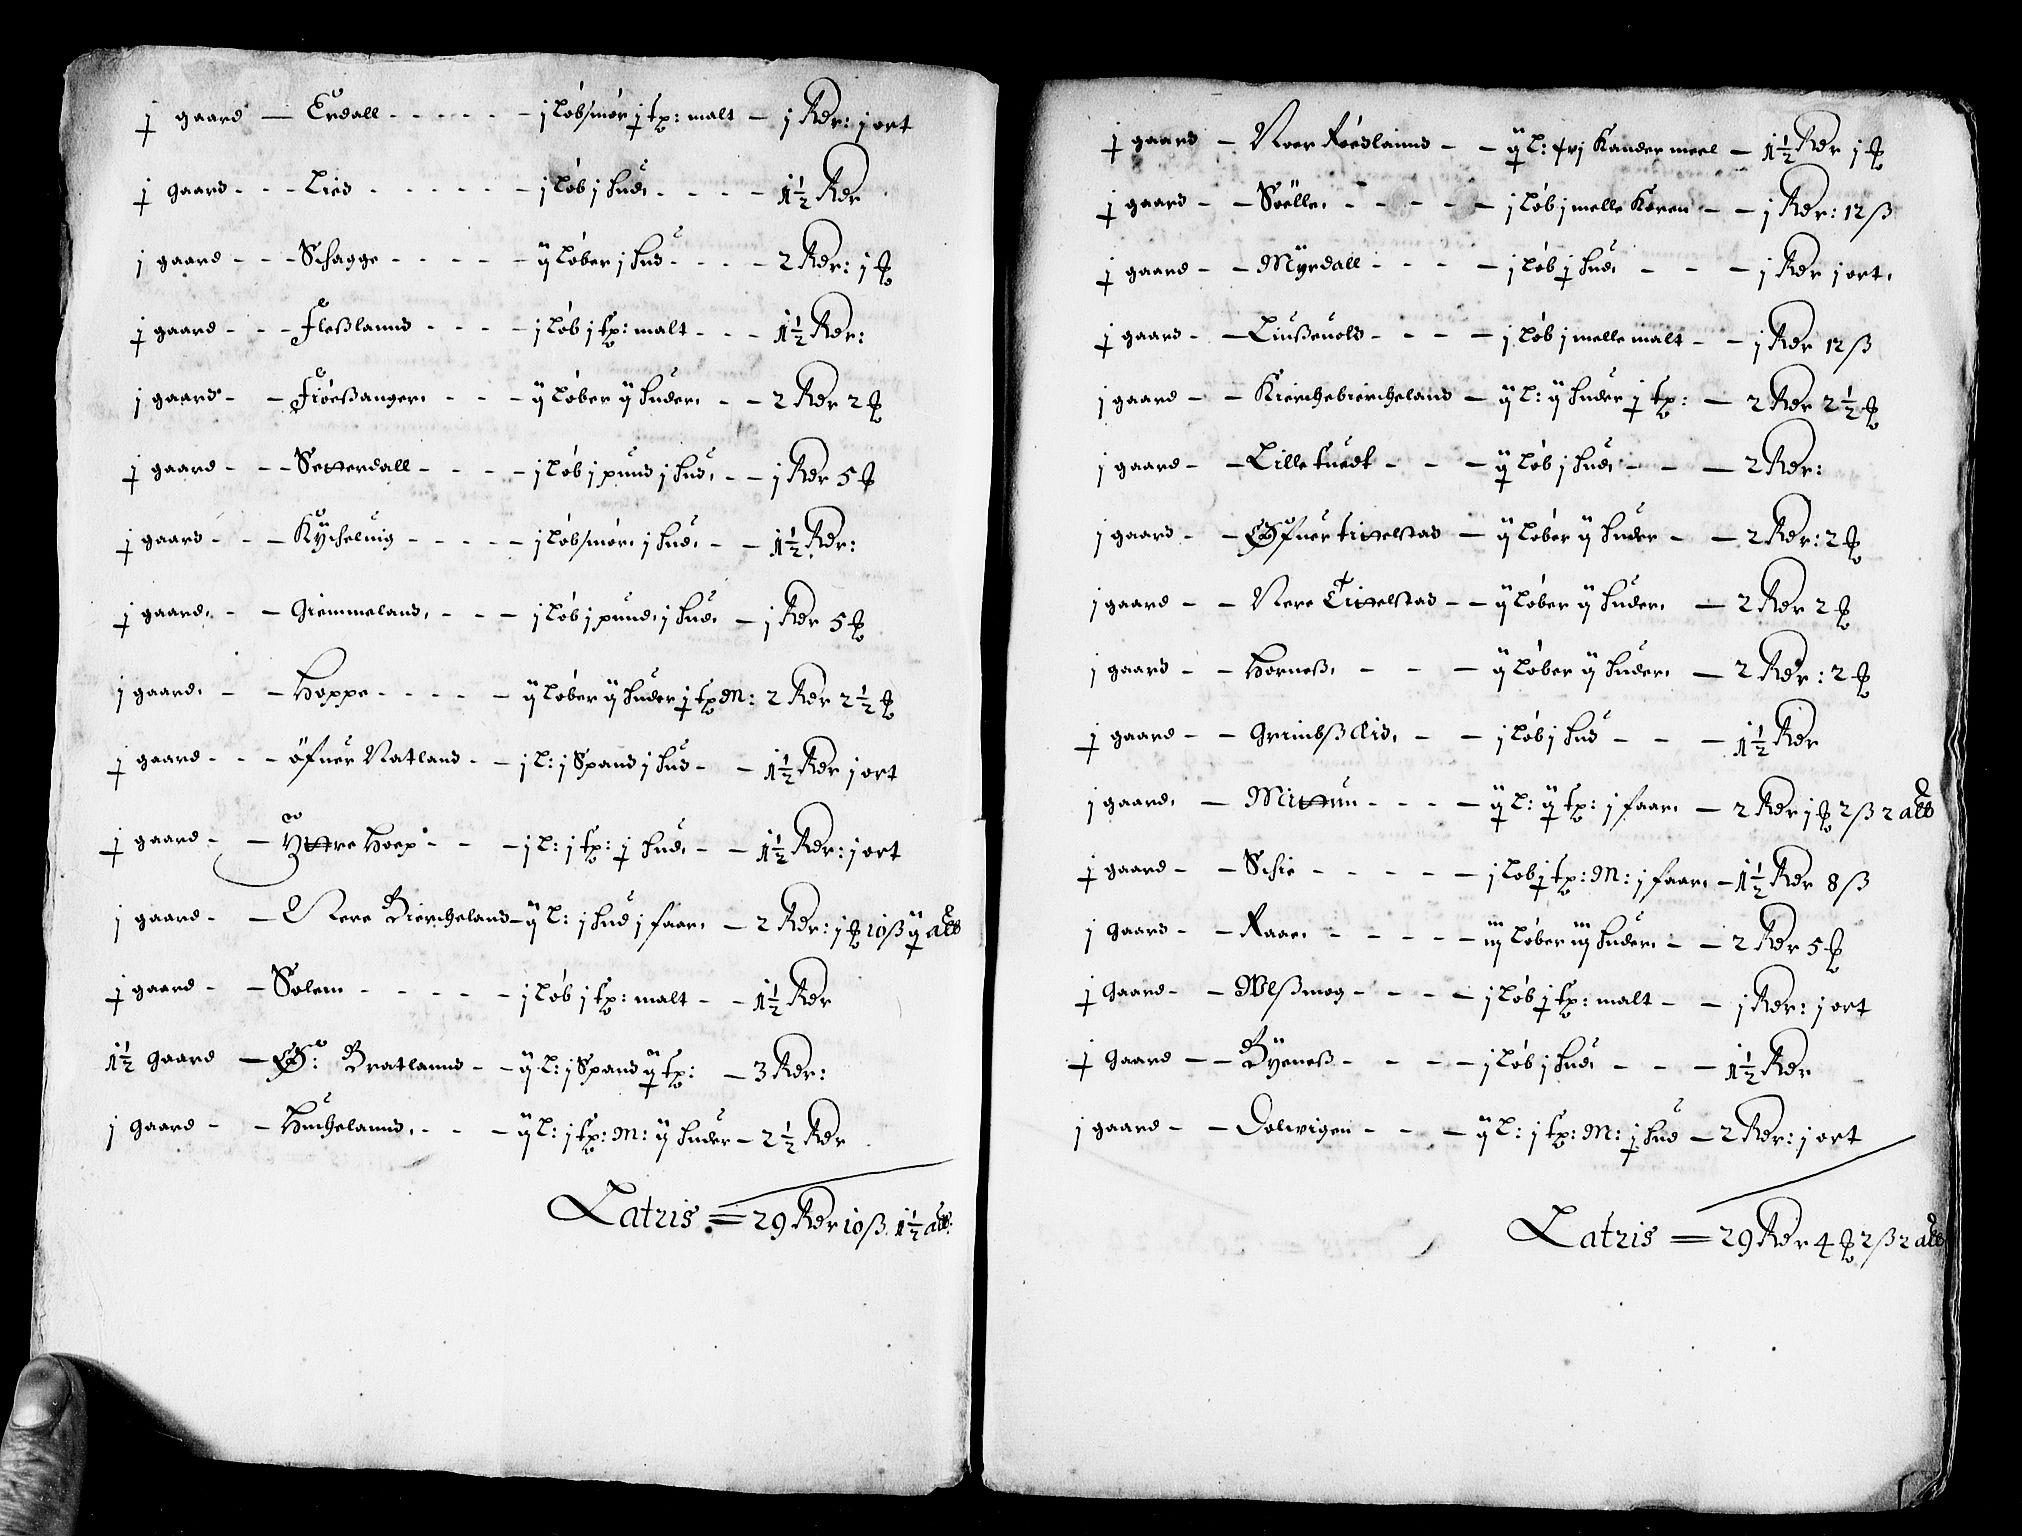 ½ gaard — Erdall - - - - - j løb smør ½ tp: malt - j Rdr: j ort
½ gaard - - - Lied - - - - - - j løb j hud, - - - - 1½ Rdr
j gaard - - - Schagge - - - - - ij løber j hud - - - - 2 Rdr: j ℔
½ gaard - - - Fleßlannd - - - - j løb j tp: malt - - - 1½ Rdr:
j gaard - - Fiøeßanger, - - - ij løber ij huder, - - 2 Rdr 2 ℔
½ gaard - - - Setterdall - - - - j løb j pund j hud, - - j Rdr 5 ℔
½ gaard - - - Kycheluig - - - - - j løb smør, j hud, - - 1½ Rdr:
½ gaard, - - Giemmeland, - - - j løb j pund, j hud, - j Rdr 5 ℔
j gaard, - - Hoppe - - - - ij løber ij huder ½ tp M: 2 Rdr 2½ ℔
½ gaard - - - öfuer Natland - - j l: j Spand j hud - - 1½ Rdr j ort
½ gaard - - Yttre Hoep - - - j l: j tp: ½ hud, - - 1½ Rdr: j ort
j gaard - - Nere Biercheland - ij l: j hud j faar, - 2 Rdr: j ℔ 10 ß ij alb
½ gaard - - Solem - - - - - j løb j tp: malt - - 1½ Rdr
1½ gaard — Ø: Bratlannd - - ij l: j Spand ij tp: - 3 Rdr:
j gaard - - Huchelannd, - - - ij l: j tp: M: ij huder - 2½ Rdr
Latris = 29 Rdr 10 ß 1½ alb:
½ gaard - Noer Røeslannd - - ij l: xvj Kander meel - 1½ Rdr j ℔
½ gaard - - Søelle, - - - - - j løb j melle Koren - - j Rdr: 12 ß
½ gaard - - Myrdall - - - - j løb ½ hud, - - - j Rdr j ort,
½ gaard - - Liußeuold - - - - j løb j melle malt - - j Rdr 12 ß
j gaard - - Kierchebiercheland - ij l: ij huder ½ tp: - 2 Rdr 2½ ℔
j gaard - - Lille tuedt - - - ij løb j hud, - - - 2 Rdr:
j gaard - - Øfuer tittelstad - ij løber ij huder - - 2 Rdr: 2 ℔
j gaard - - Nere Tittelstad - - ij løber ij huder, - 2 Rdr 2 ℔
j gaard - - Horneß, - - - ij løber ij huder, - 2 Rdr: 2 ℔
½ gaard - - Grimbß Eid, - - j løb j hud - - - 1½ Rdr
j gaard, - Mittun - - - - ij l: ij tp: j faar, - 2 Rdr j ℔ 2 ß 2 alb
½ gaard - - Schie - - - - - j løb ½ tp: M: j faar, - 1½ Rdr 8 ß
j gaard - - Raae, - - - - - iij løber iij huder, - - 2 Rdr 5 ℔
½ gaard - - Wlßmog - - - - j løb ½ tp: malt - - j Rdr: j ort
½ gaard - - Byeneß - - - - j løb j hud, - - - 1½ Rdr
j gaard - - Dolwigen - - - ij l: j tp: M: ½ hud - 2 Rdr: j ort
Latris = 29 Rdr 4 ℔ 2 ß 2 alb